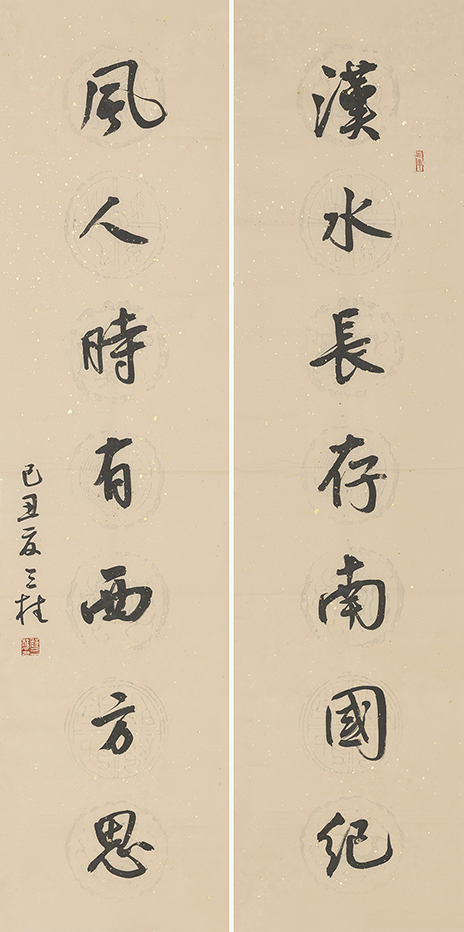 漢水長存南國紀
風人時有西方思
己丑夏三柱